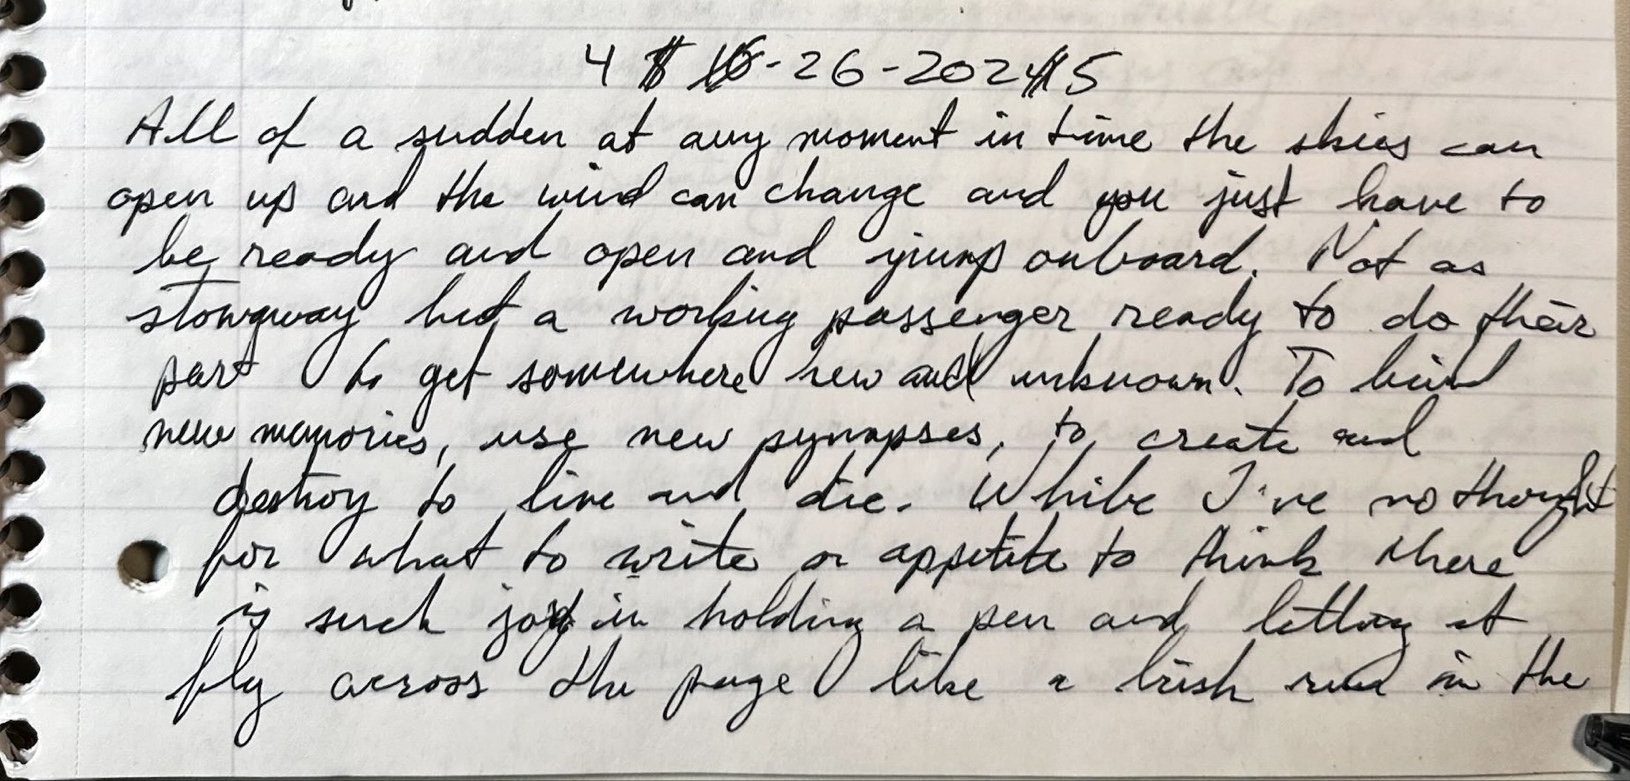 4 -26-2025
All of a sudden at any moment in time the skies can
open up and the wind can change and you just have to
be ready and open and jump onboard. Not as
stowaway but a working passenger ready to do their
part to get somewhere new and unknown. To bind
new memories, use new synapses, to create and
destroy to live and die. While I've no thought
for what to write or appetite to think there
is such joy in holding a pen and letting it
fly across the page like a brisk run in the